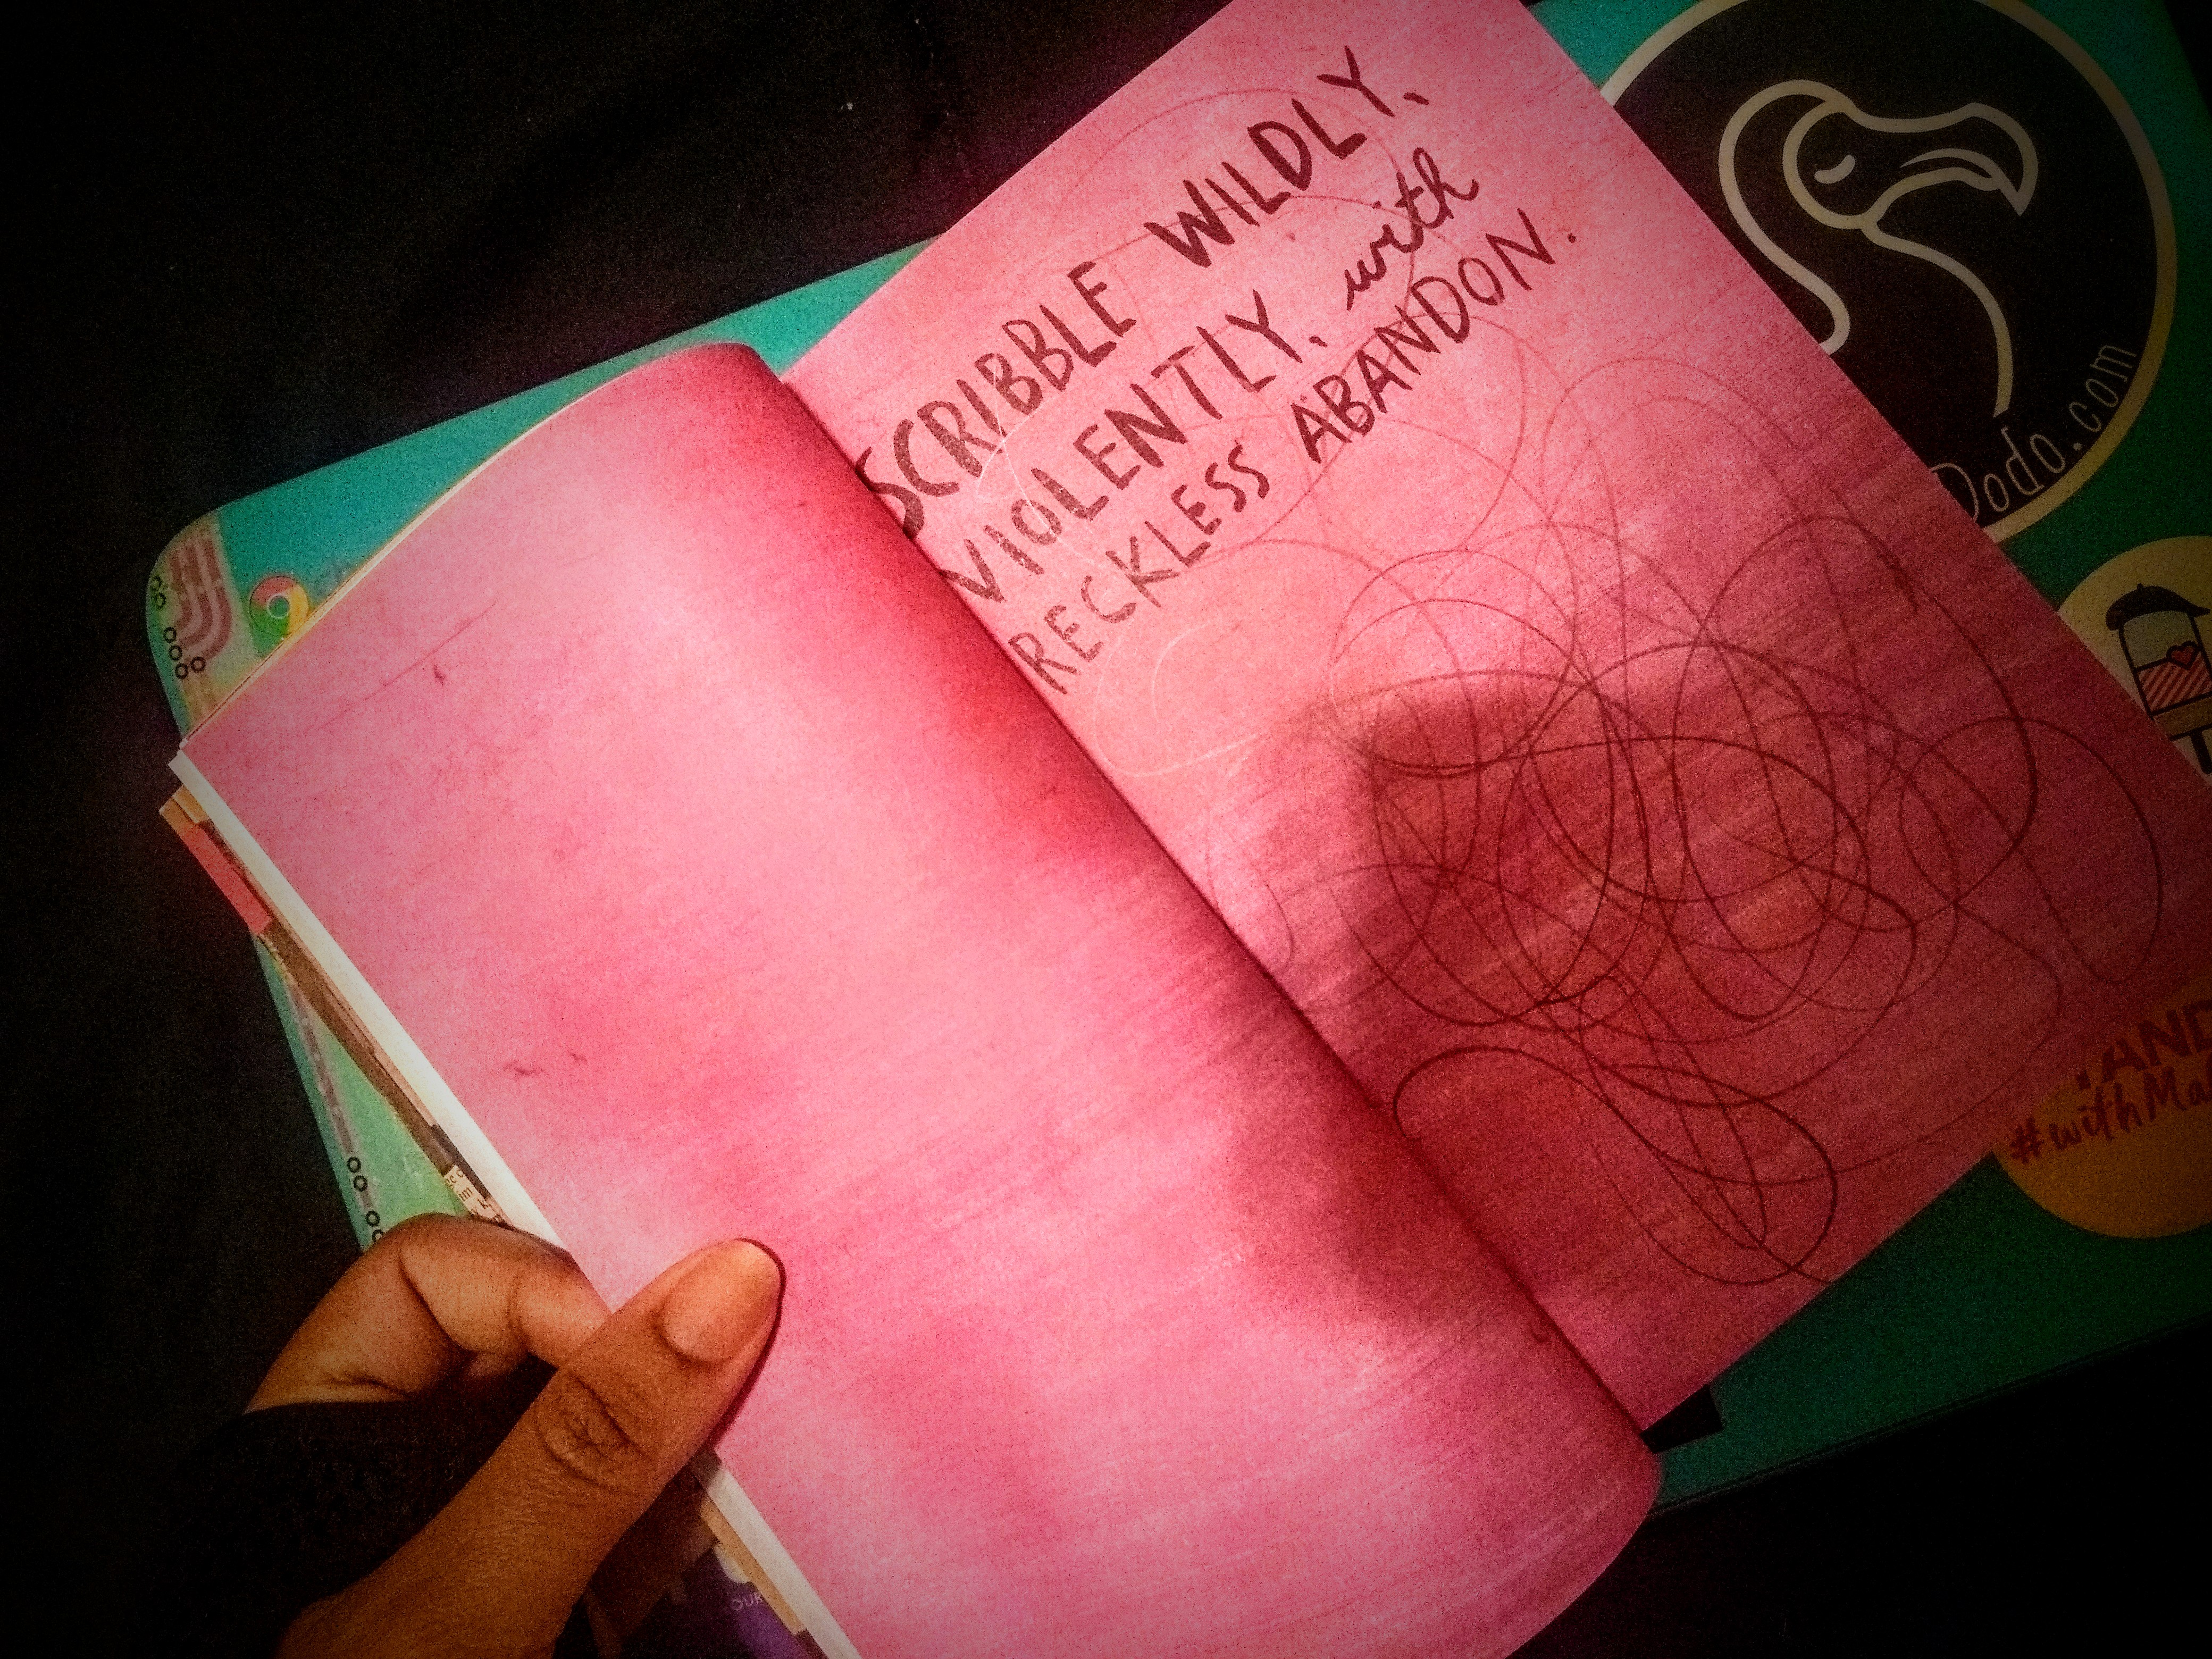 SCRIBBLE WILDLY,
VIOLENTLY, with
RECKLESS ABANDON.
Dodo.com
#withMa
OUR